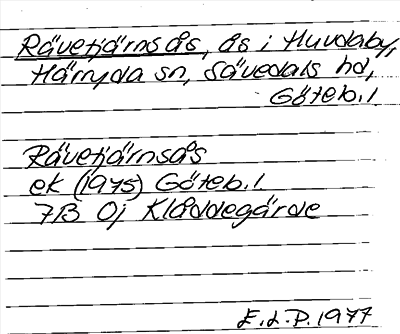 Rävetjärnsås, ås i Huvdaby,
Härryda sn, Sävedals hd,
Göteb. l
Rävetjärnsås
ek (1975) Göteb. l.
7B 0j Kläddegärde
E.L.P. 1977